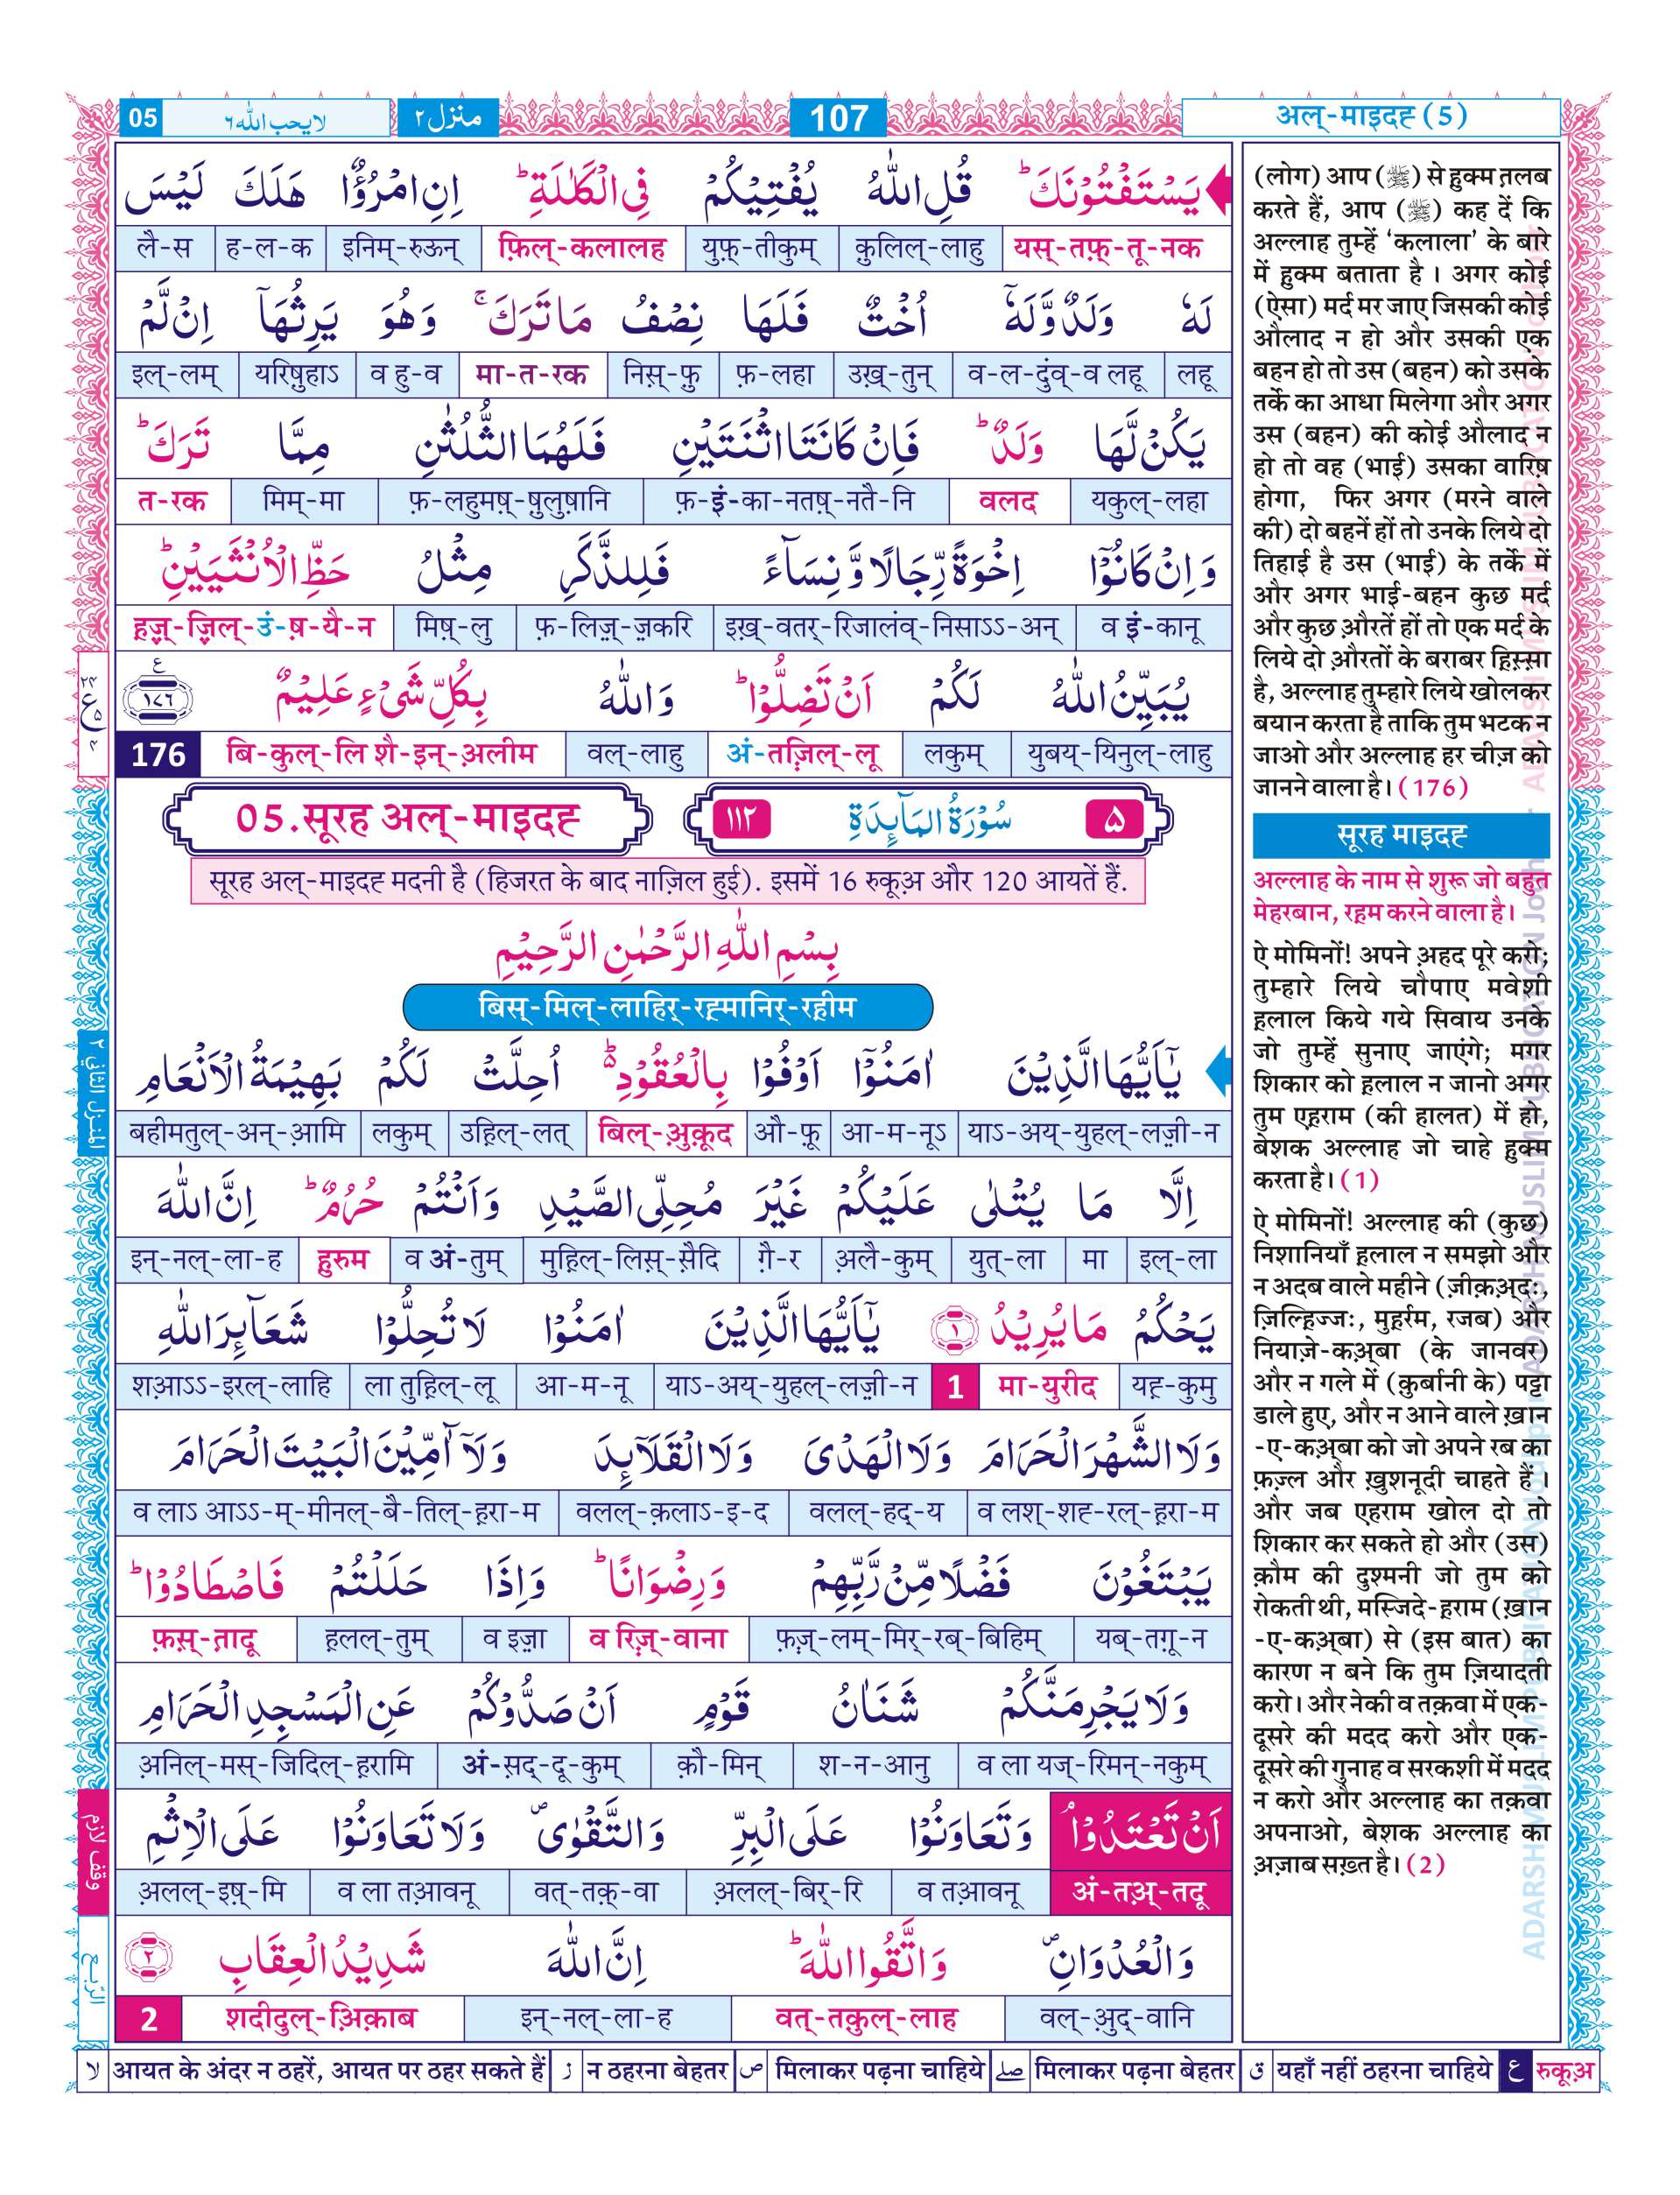 05 لا یحب اللہ ٦ منزل ٢ 107 अल्-माइदह (5)
يَسْتَفْتُوْنَكَ ؕ قُلِ اللّٰهُ يُفْتِيْكُمْ فِى الْكَلٰلَةِ ؕ اِنِ امْرُؤٌا هَلَكَ لَيْسَ
लै-स ह-ल-क इनिम्-रुऊन् फ़िल्-कलालह युफ़्-तीकुम् क़ुलिल्-लाहु यस्-तफ़्-तू-नक
لَهٗ وَلَدٌ وَّلَهٗۤ اُخْتٌ فَلَهَا نِصْفُ مَا تَرَكَ ۚ وَهُوَ يَرِثُهَاۤ اِنْ لَّمْ
इल्-लम् यरिषु़हाऽ व हु-व मा-त-रक निस़्-फ़ु फ़-लहा उख़्-तुन् व-ल-दुंव्-व लहू लहू
يَكُنْ لَّهَا وَلَدٌ ؕ فَاِنْ كَانَتَا اثْنَتَيْنِ فَلَهُمَا الثُّلُثٰنِ مِمَّا تَرَكَ ؕ
त-रक मिम्-मा फ़-लहुमष़्-षु़लुषा़नि फ़-इं-का-नतष़्-नतै-नि वलद यकुल्-लहा
وَاِنْ كَانُوْۤا اِخْوَةً رِّجَالًا وَّنِسَآءً فَلِلذَّكَرِ مِثْلُ حَظِّ الْاُنْثَيَيْنِ ؕ
ह़ज़्-ज़िल्-उं-ष़-यै-न मिष़्-लु फ़-लिज़्-ज़करि इख़्-वतर्-रिजालंव्-निसाऽऽ-अन् व इं-कानू
يُبَيِّنُ اللّٰهُ لَكُمْ اَنْ تَضِلُّوْا ؕ وَاللّٰهُ بِكُلِّ شَىْءٍ عَلِيْمٌ ١٧٦
176 बि-कुल्-लि शै-इन्-अ़लीम वल्-लाहु अं-तज़िल्-लू लकुम् युबय्-यिनुल्-लाहु
05.सूरह अल्-माइदह ١١٢ سُوْرَةُ الْمَآئِدَةِ ٥
सूरह अल्-माइदह मदनी है (हिजरत के बाद नाज़िल हुई). इसमें 16 रुकूअ़ और 120 आयतें हैं.
بِسْمِ اللّٰهِ الرَّحْمٰنِ الرَّحِيْمِ
बिस्-मिल्-लाहिर्-रह़मानिर्-रह़ीम
يٰۤاَيُّهَا الَّذِيْنَ اٰمَنُوْۤا اَوْفُوْا بِالْعُقُوْدِ ؕ اُحِلَّتْ لَكُمْ بَهِيْمَةُ الْاَنْعَامِ
बहीमतुल्-अन्-आ़मि लकुम् उहि़ल्-लत् बिल्-उ़क़ूद औ-फ़ू आ-म-नूऽ याऽ-अय्-युहल्-लज़ी-न
اِلَّا مَا يُتْلٰى عَلَيْكُمْ غَيْرَ مُحِلِّى الصَّيْدِ وَاَنْتُمْ حُرُمٌ ؕ اِنَّ اللّٰهَ
इन्-नल्-ला-ह हु़रुम व अं-तुम् मुहि़ल्-लिस़्-सै़दि ग़ै-र अ़लै-कुम् युत्-ला मा इल्-ला
يَحْكُمُ مَا يُرِيْدُ ١ يٰۤاَيُّهَا الَّذِيْنَ اٰمَنُوْا لَا تُحِلُّوْا شَعَآئِرَ اللّٰهِ
शआ़ऽऽ-इरल्-लाहि ला तुहि़ल्-लू आ-म-नू याऽ-अय्-युहल्-लज़ी-न 1 मा-युरीद यह़-कुमु
وَلَا الشَّهْرَ الْحَرَامَ وَلَا الْهَدْىَ وَلَا الْقَلَآئِدَ وَلَاۤ آٰمِّيْنَ الْبَيْتَ الْحَرَامَ
व लाऽ आऽऽ-म्-मीनल्-बै-तिल्-ह़रा-म वलल्-क़लाऽ-इ-द वलल्-हद्-य व लश्-शह-रल्-ह़रा-म
يَبْتَغُوْنَ فَضْلًا مِّنْ رَّبِّهِمْ وَرِضْوَانًا ؕ وَاِذَا حَلَلْتُمْ فَاصْطَادُوْا ؕ
फ़स़्-त़ादू ह़लल्-तुम् व इज़ा व रिज़्-वाना फ़ज़्-लम्-मिर्-रब्-बिहिम् यब्-तग़ू-न
وَلَا يَجْرِمَنَّكُمْ شَنَاٰنُ قَوْمٍ اَنْ صَدُّوْكُمْ عَنِ الْمَسْجِدِ الْحَرَامِ
अ़निल्-मस्-जिदिल्-ह़रामि अं-स़द्-दू-कुम् क़ौ-मिन् श-न-आनु व ला यज्-रिमन्-नकुम्
اَنْ تَعْتَدُوْا ۘ وَتَعَاوَنُوْا عَلَى الْبِرِّ وَالتَّقْوٰى ۪ وَلَا تَعَاوَنُوْا عَلَى الْاِثْمِ
अ़लल्-इष़्-मि व ला तआ़वनू वत्-तक़्-वा अ़लल्-बिर्-रि व तआ़वनू अं-तअ़्-तदू
وَالْعُدْوَانِ ۪ وَاتَّقُوا اللّٰهَ ؕ اِنَّ اللّٰهَ شَدِيْدُ الْعِقَابِ ٢
2 शदीदुल्-इ़क़ाब इन्-नल्-ला-ह वत्-तक़ुल्-लाह वल्-उ़द्-वानि
(लोग) आप (ﷺ) से हुक्म त़लब
करते हैं, आप (ﷺ) कह दें कि
अल्लाह तुम्हें ‘कलाला’ के बारे
में हुक्म बताता है । अगर कोई
(ऐसा) मर्द मर जाए जिसकी कोई
औलाद न हो और उसकी एक
बहन हो तो उस (बहन) को उसके
तर्के का आधा मिलेगा और अगर
उस (बहन) की कोई औलाद न
हो तो वह (भाई) उसका वारिष़
होगा, फिर अगर (मरने वाले
की) दो बहनें हों तो उनके लिये दो
तिहाई है उस (भाई) के तर्के में
और अगर भाई-बहन कुछ मर्द
और कुछ औ़रतें हों तो एक मर्द के
लिये दो औ़रतों के बराबर हि़स़्स़ा
है, अल्लाह तुम्हारे लिये खोलकर
बयान करता है ताकि तुम भटक न
जाओ और अल्लाह हर चीज़ को
जानने वाला है। (176)
सूरह माइदह
अल्लाह के नाम से शुरू जो बहुत
मेहरबान, रह़म करने वाला है।
ऐ मोमिनों! अपने अ़हद पूरे करो;
तुम्हारे लिये चौपाए मवेशी
ह़लाल किये गये सिवाय उनके
जो तुम्हें सुनाए जाएंगे; मगर
शिकार को ह़लाल न जानो अगर
तुम एह़राम (की हालत) में हो,
बेशक अल्लाह जो चाहे हु़क्म
करता है। (1)
ऐ मोमिनों! अल्लाह की (कुछ)
निशानियाँ ह़लाल न समझो और
न अदब वाले महीने (ज़ीक़अ़्दः,
ज़िल्हि़ज्जः, मुह़र्रम, रजब) और
नियाज़े-कअ़्बा (के जानवर)
और न गले में (क़ुर्बानी के) पट्टा
डाले हुए, और न आने वाले ख़ान
-ए-कअ़्बा को जो अपने रब का
फ़ज़्ल और ख़ुशनूदी चाहते हैं ।
और जब एह़राम खोल दो तो
शिकार कर सकते हो और (उस)
क़ौम की दुश्मनी जो तुम को
रोकती थी, मस्जिदे-ह़राम (ख़ान
-ए-कअ़्बा) से (इस बात) का
कारण न बने कि तुम ज़ियादती
करो। और नेकी व तक़वा में एक-
दूसरे की मदद करो और एक-
दूसरे की गुनाह व सरकशी में मदद
न करो और अल्लाह का तक़वा
अपनाओ, बेशक अल्लाह का
अ़ज़ाब सख़्त है। (2)
المنزل الثانی ٢
وقف لازم
الربع
ADARSH MUSLIM PUBLICATION Jodhpur
لا आयत के अंदर न ठहरें, आयत पर ठहर सकते हैं ز न ठहरना बेहतर ص मिलाकर पढ़ना चाहिये صلے मिलाकर पढ़ना बेहतर ق यहाँ नहीं ठहरना चाहिये ع रुकूअ़